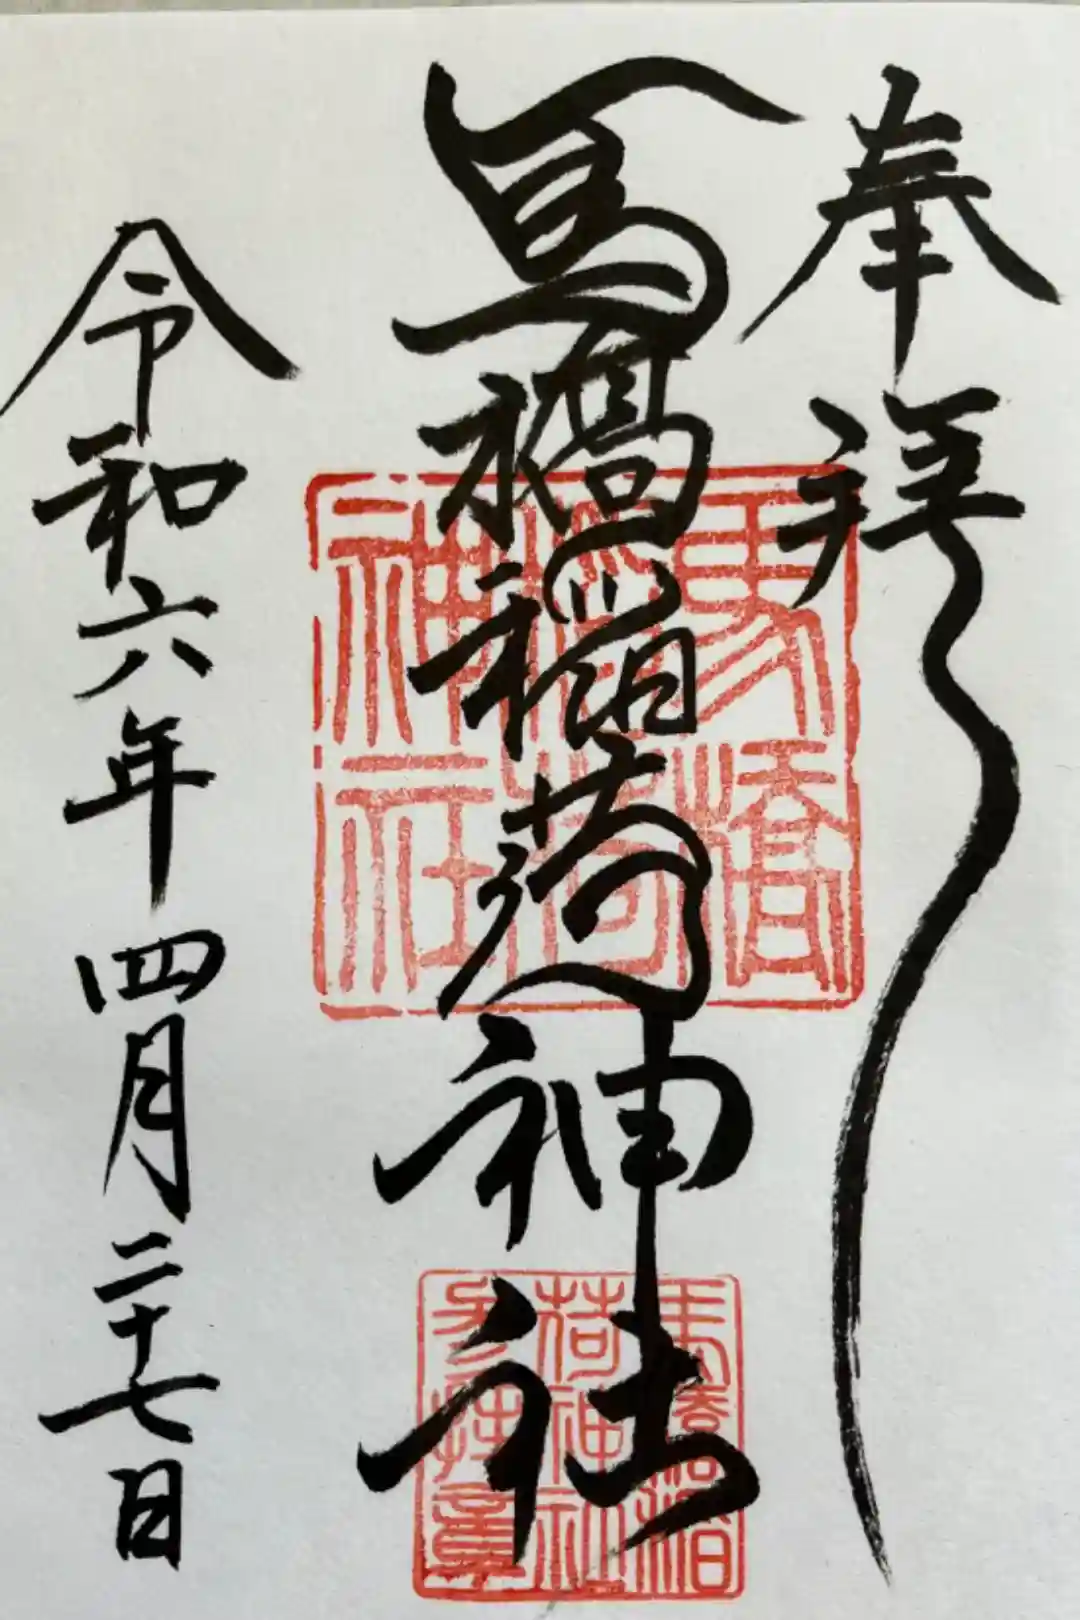 奉拝
馬橋稲荷神社
馬橋稲荷神社
馬橋稲荷神社参拝章
令和六年四月二十七日